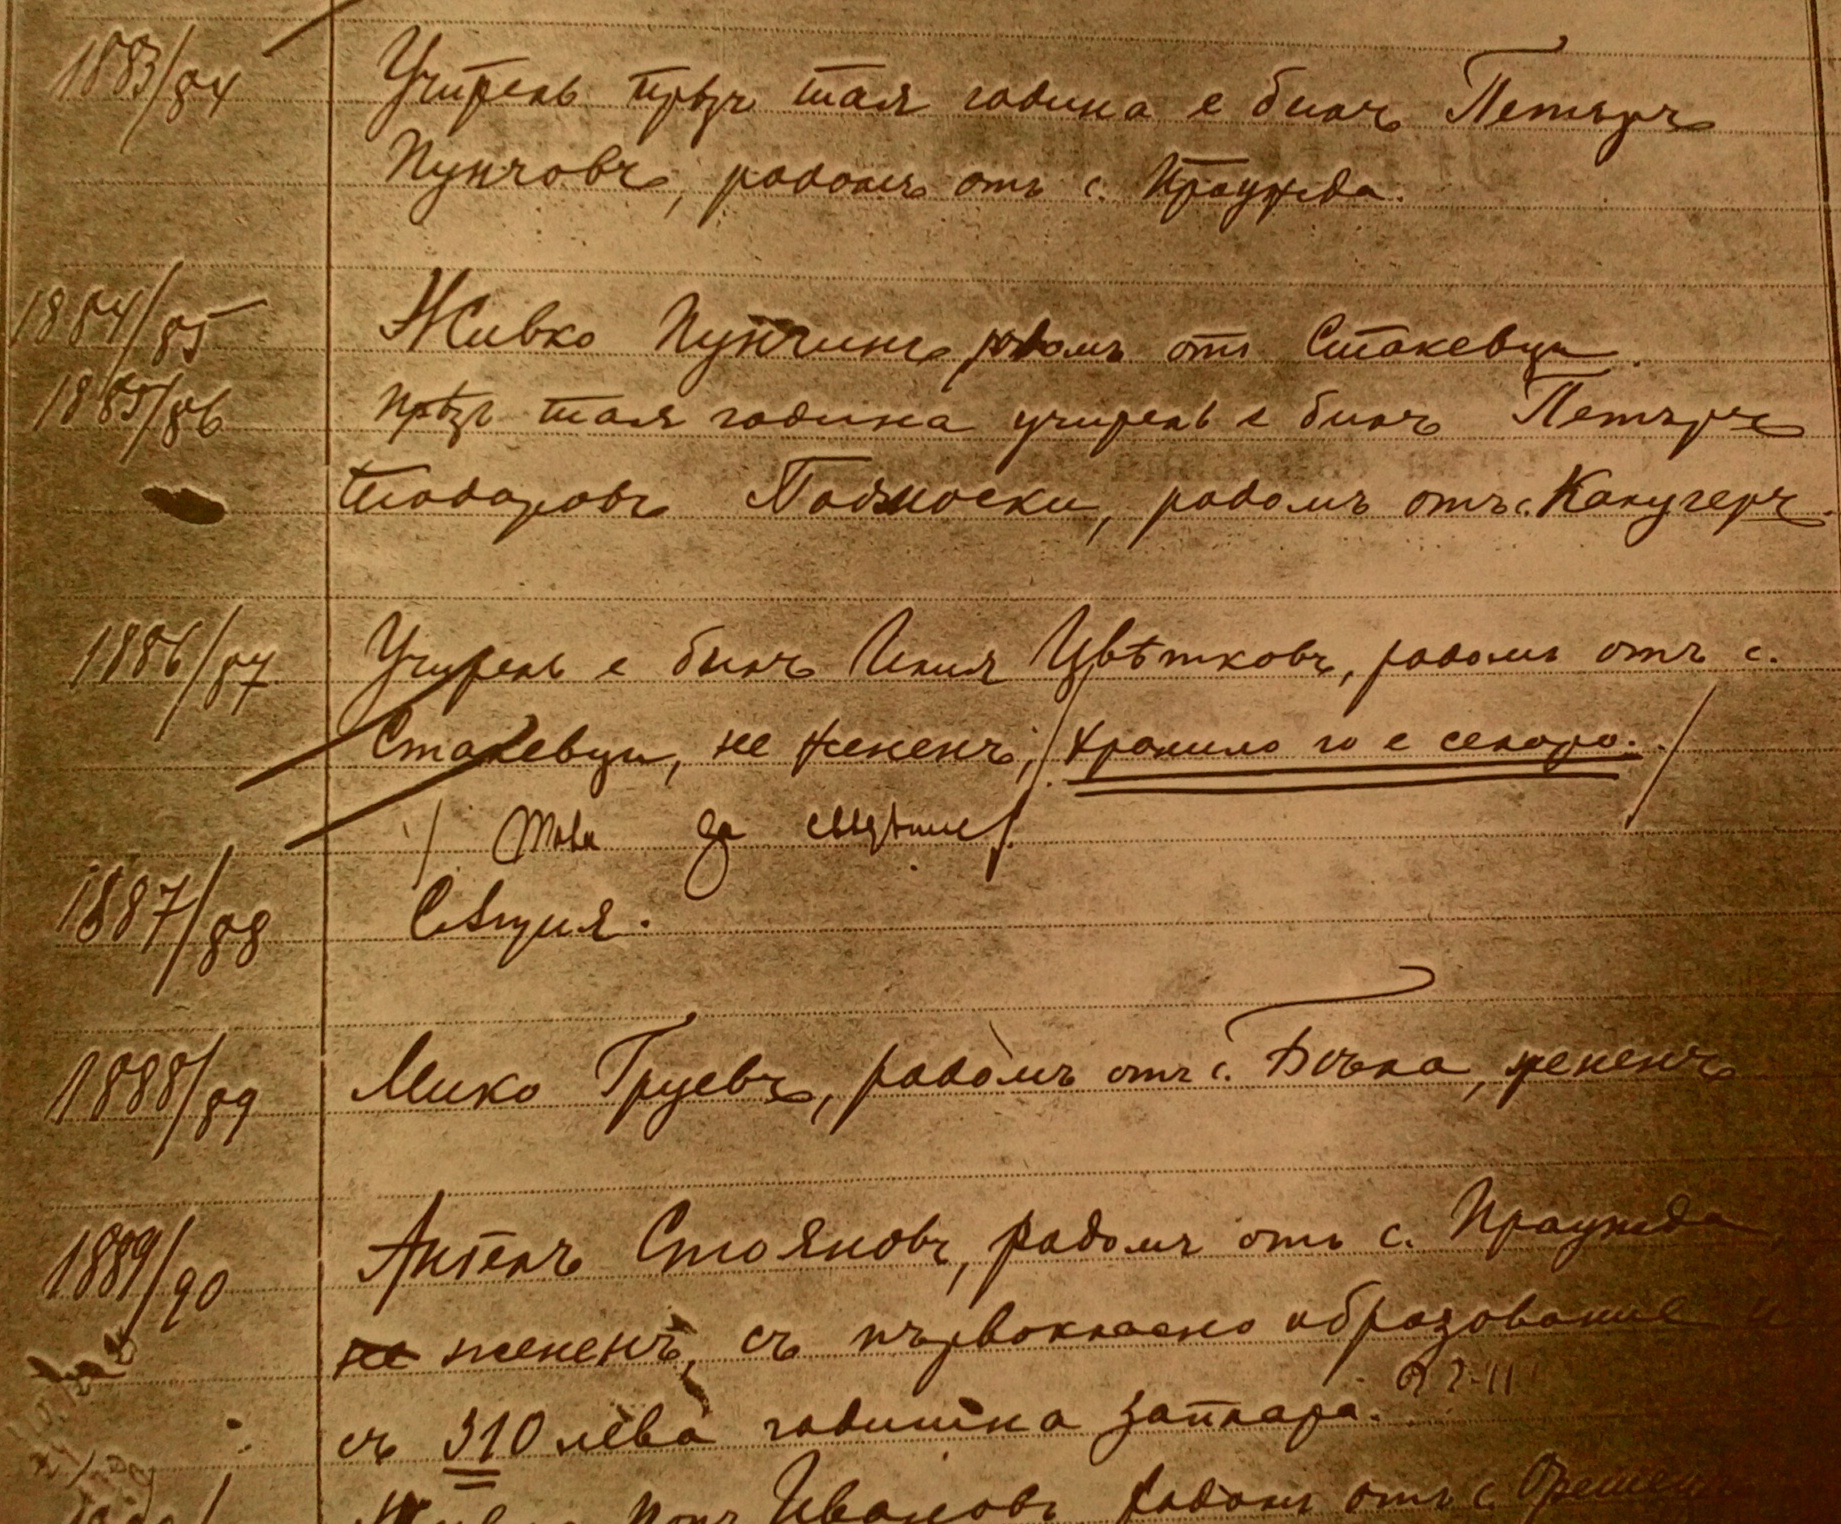 1883/84 Учитель прѣзъ тая година е билъ Петъръ
Пунчовъ, родомъ отъ с. Праужда.
1884/85 Живко Пунчинъ родомъ отъ Стакевци.
1885/86 прѣзъ тая година учитель е билъ Петъръ
Тодоровъ родомъ отъ с. Калугеръ.
1886/87 Учитель е билъ Илия Цвѣтковъ, родомъ отъ с.
Стакевци, не жененъ, /хранило го е селото./
/ Това за
1887/88 Сѫщия.
1888/89 Мико Груевъ, родомъ отъ с. жененъ
1889/90 Антенъ Стояновъ, родомъ отъ с. Праужда
не жененъ, съ първокласно образование и
съ 310 лева годишна заплата.
попъ Ивановъ родомъ отъ с.